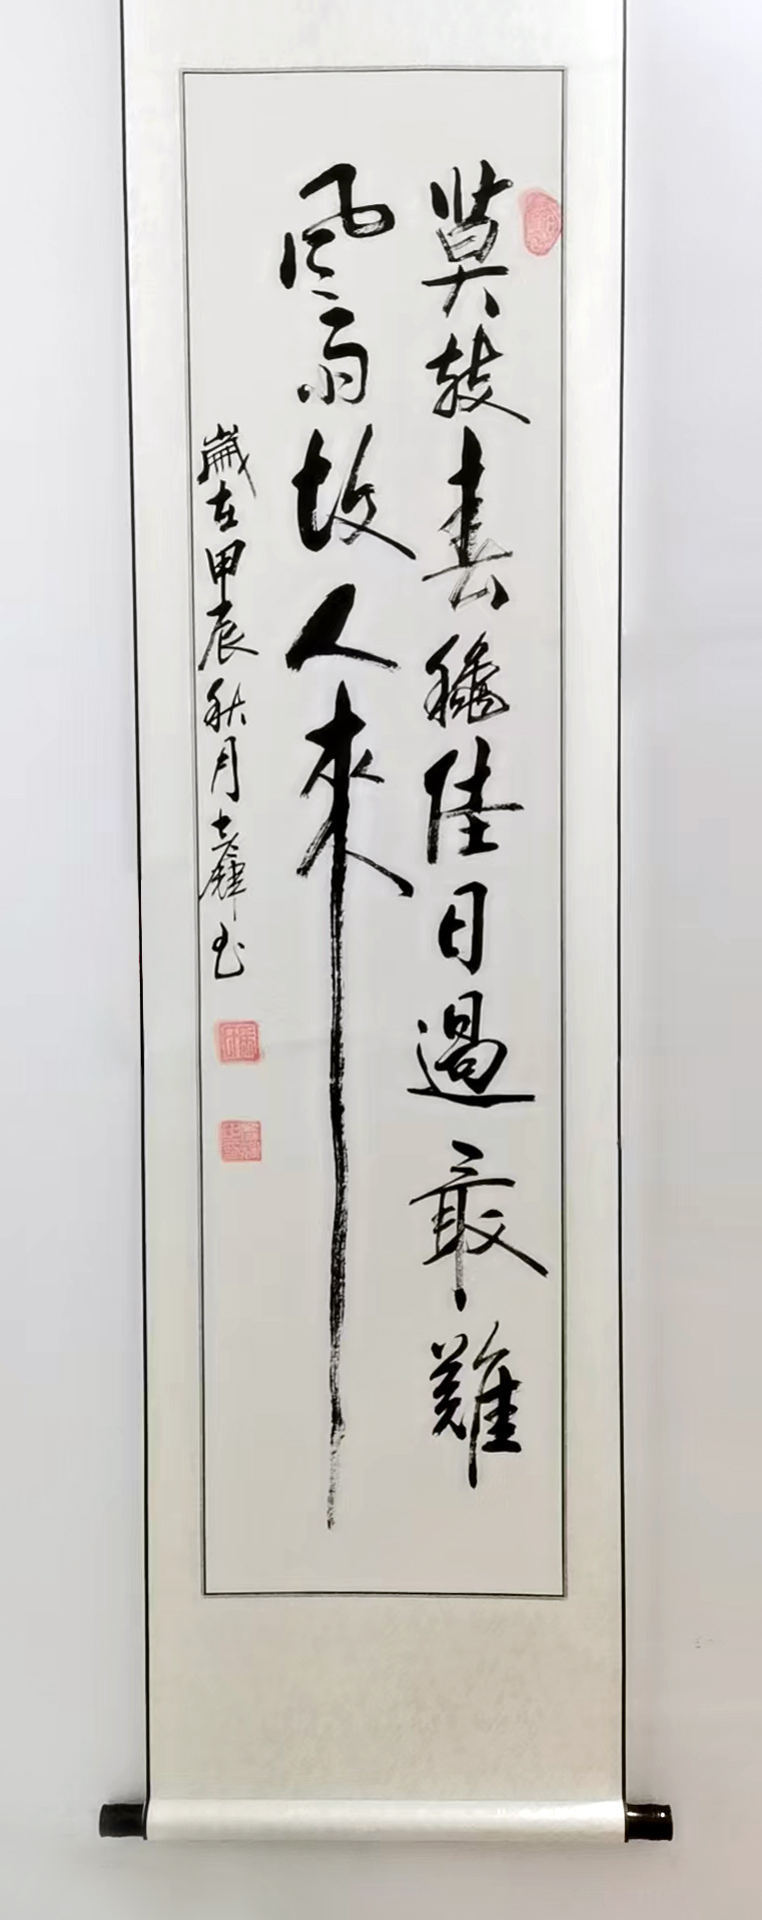 莫放春穐佳日過最難
風雨故人來
歲在甲辰秋月書